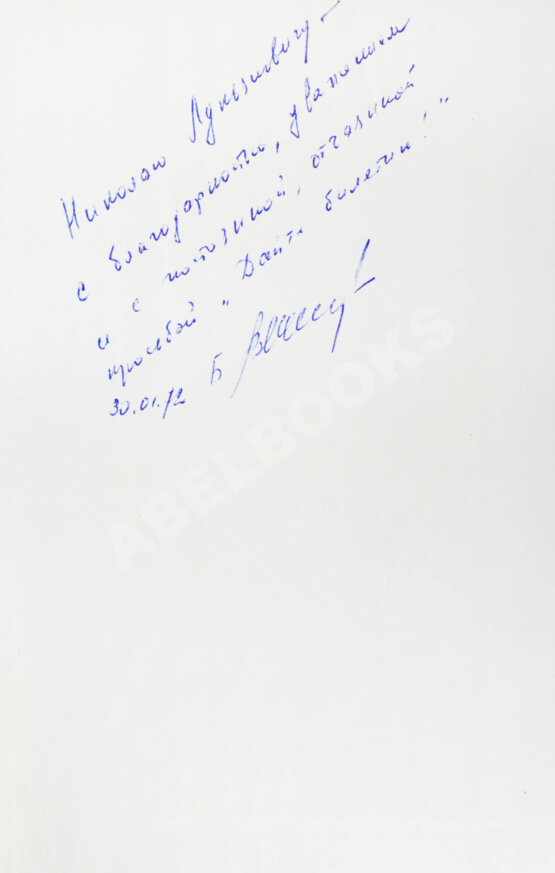 Николаю Лукьяновичу –
с благодарностью, уважением
и с поэтичной, отчаянной
просьбой „Дайте билетик!"
30.01.72 Б.
ABELBOOKS